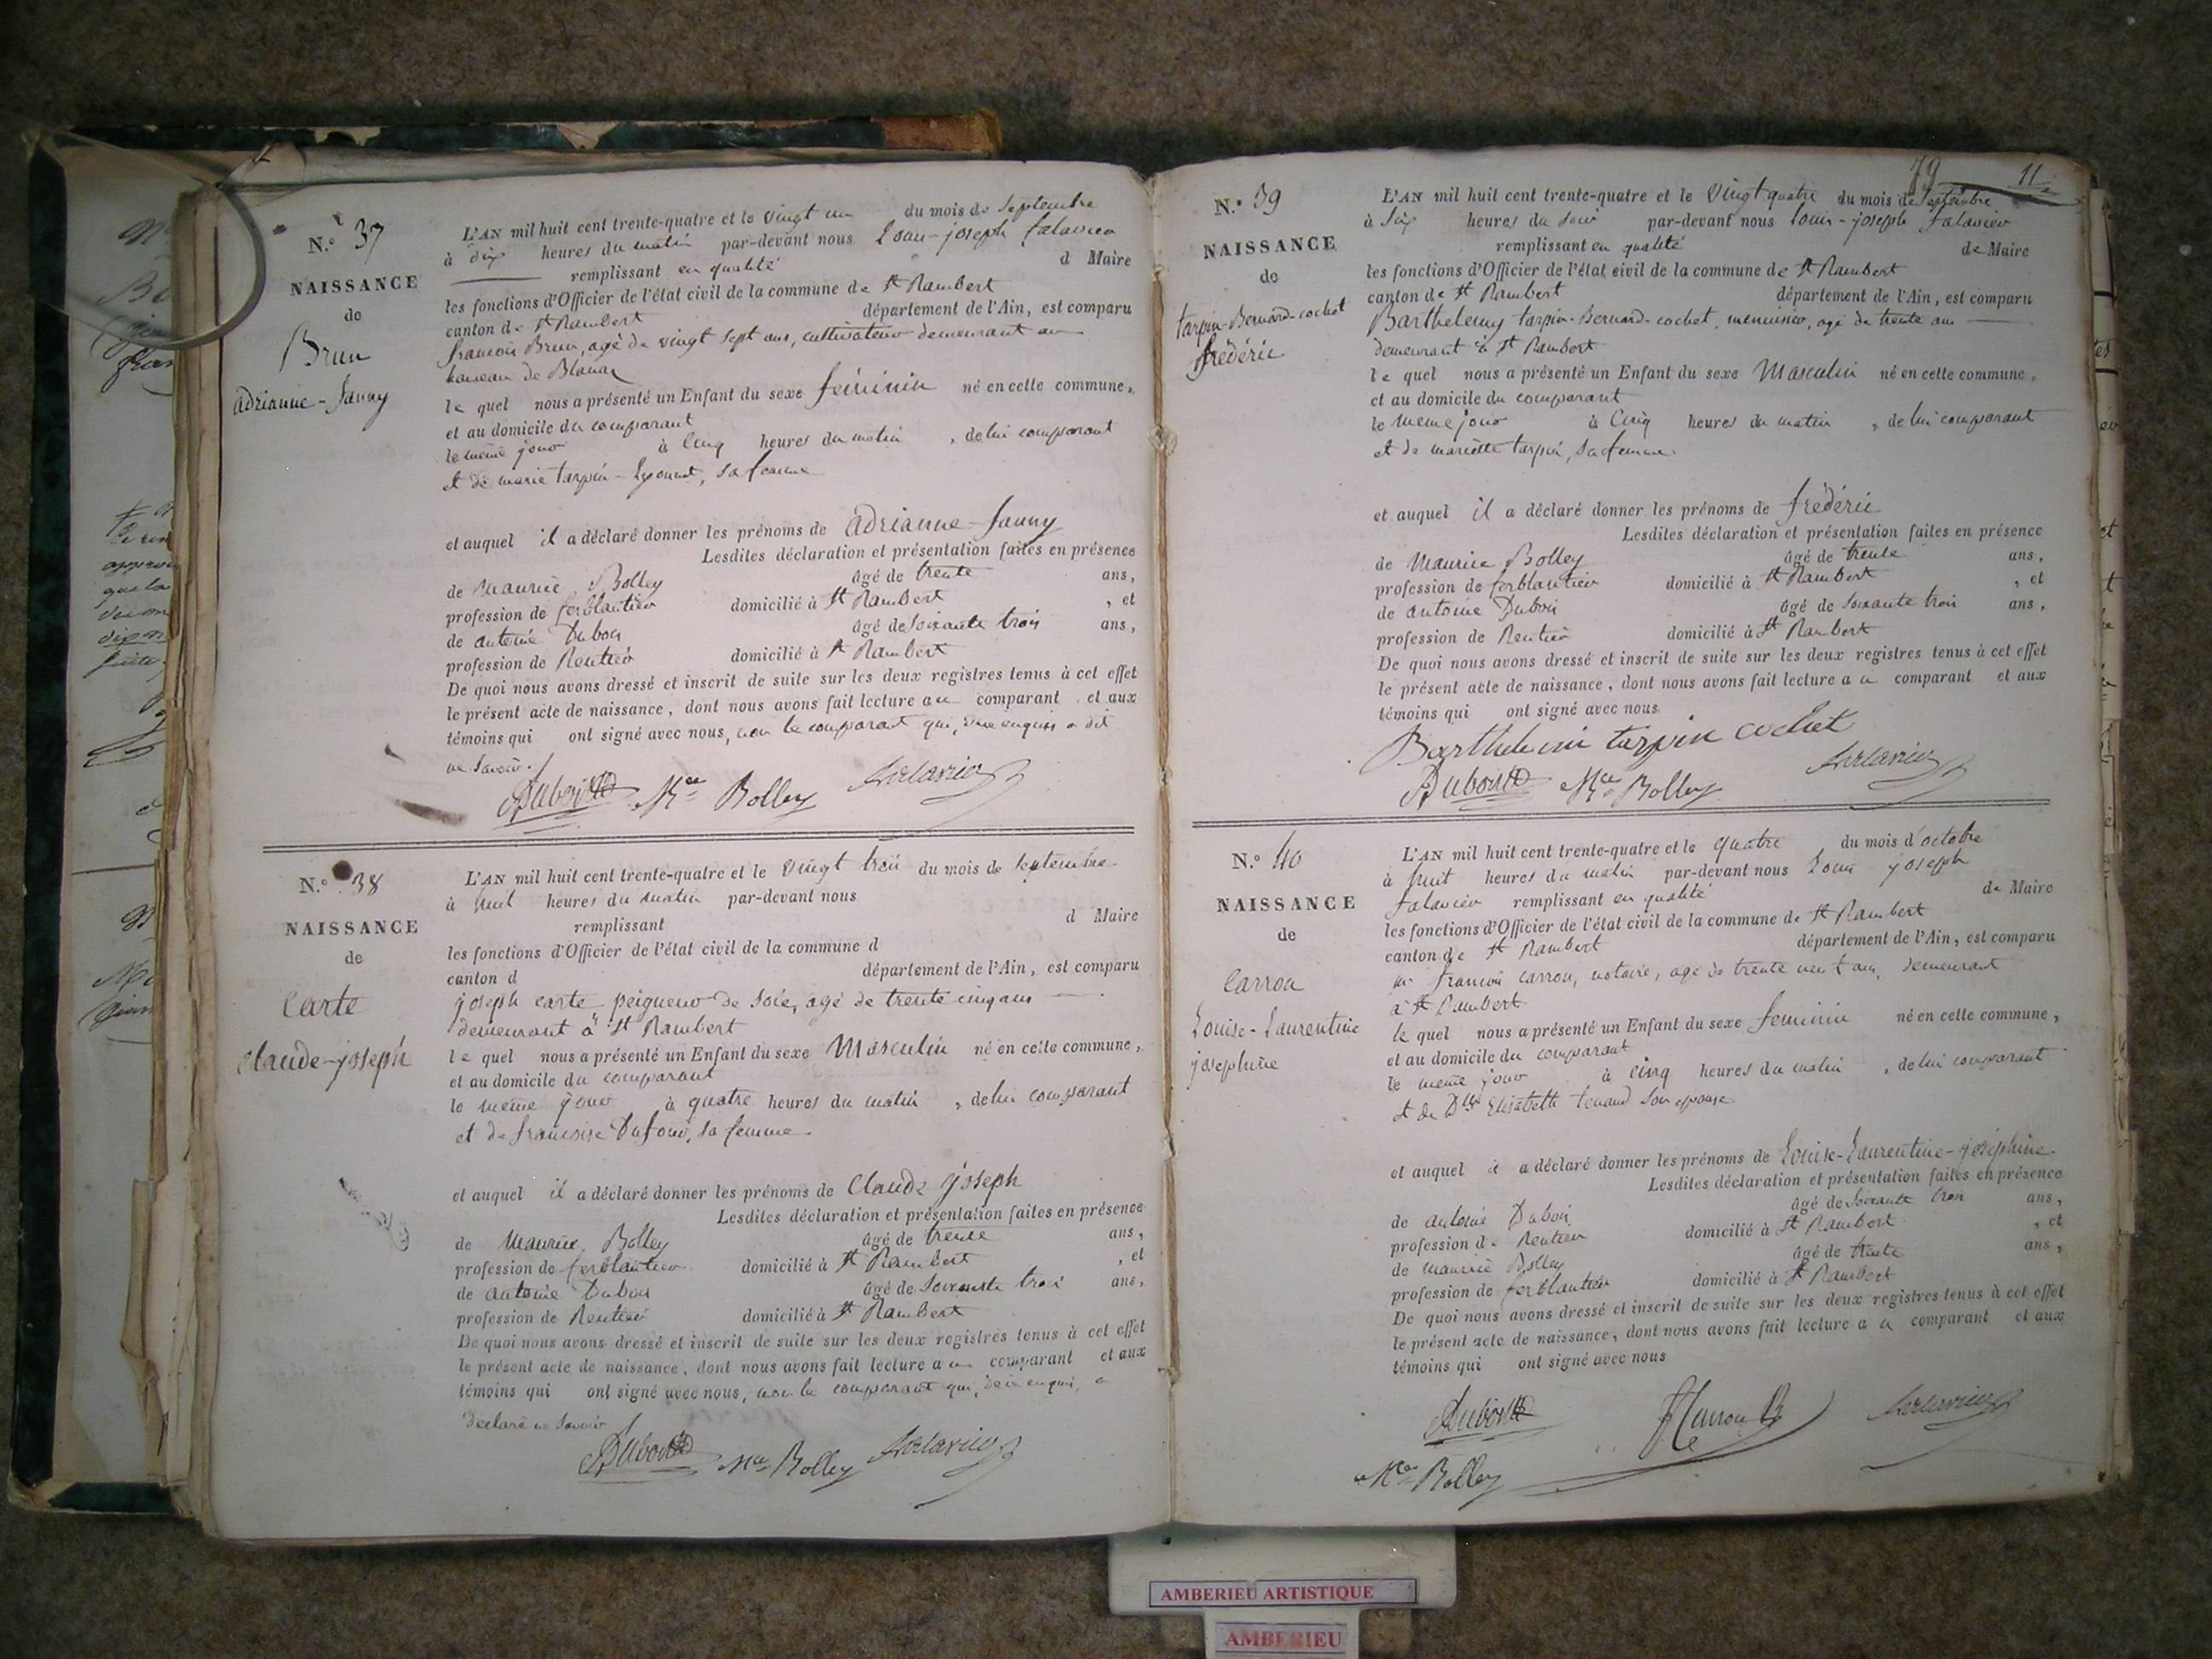 N.° 37
NAISSANCE
de
Brun
adrianne-fanny
L'AN mil huit cent trente-quatre et le vingt un du mois de septembre
à dix heures du matin par-devant nous Louis-joseph falavier
remplissant en qualité d Maire
les fonctions d'Officier de l'état civil de la commune de St Rambert
canton de St Rambert département de l'Ain, est comparu
francois Brun, agé de vingt sept ans, cultivateur demeurant au
hameau de Blanaz
le quel nous a présenté un Enfant du sexe féminin né en cette commune,
et au domicile du comparant
le même jour à cinq heures du matin, de lui comparant
et de marie tarpin-, sa femme
et auquel il a déclaré donner les prénoms de adrianne-fanny
Lesdites déclaration et présentation faites en présence
de maurice Bolley âgé de trente ans,
profession de ferblantier domicilié à St Rambert, et
de antoine Dubois âgé de soixante trois ans,
profession de Rentier domicilié à St Rambert
De quoi nous avons dressé et inscrit de suite sur les deux registres tenus à cet effet
le présent acte de naissance, dont nous avons fait lecture au comparant et aux
témoins qui ont signé avec nous, non le comparant qui, de ce enquis a dit
ne savoir.
Dubois Mce Bolley falavier
N.° 38
NAISSANCE
de
Carte
Claude-joseph
L'AN mil huit cent trente-quatre et le vingt trois du mois de septembre
à huit heures du matin par-devant nous
remplissant d Maire
les fonctions d'Officier de l'état civil de la commune d
canton d département de l'Ain, est comparu
joseph carte peigneur de soie, agé de trente cinq ans
demeurant à St Rambert
le quel nous a présenté un Enfant du sexe Masculin né en cette commune,
et au domicile du comparant
le même jour à quatre heures du matin, de lui comparant
et de francoise Dufour, sa femme.
et auquel il a déclaré donner les prénoms de Claude joseph
Lesdites déclaration et présentation faites en présence
de Maurice Bolley âgé de trente ans,
profession de ferblantier domicilié à St Rambert, et
de antoine Dubois âgé de soixante trois ans,
profession de Rentier domicilié à St Rambert
De quoi nous avons dressé et inscrit de suite sur les deux registres tenus à cet effet
le présent acte de naissance, dont nous avons fait lecture au comparant et aux
témoins qui ont signé avec nous, non le comparant qui, de ce enquis, a
déclaré ne savoir
Dubois Mce Bolley falavier
79 11
N.° 39
NAISSANCE
de
tarpin-Bernard-cochet
frédéric
L'AN mil huit cent trente-quatre et le vingt quatre du mois de septembre
à six heures du soir par-devant nous louis-joseph falavier
remplissant en qualité de Maire
les fonctions d'Officier de l'état civil de la commune de St Rambert
canton de St Rambert département de l'Ain, est comparu
Barthelemy tarpin-Bernard-cochet, menuisier, agé de trente ans
demeurant à St Rambert
le quel nous a présenté un Enfant du sexe Masculin né en cette commune,
et au domicile du comparant
le même jour à Cinq heures du matin, de lui comparant
et de mariette tarpin, sa femme.
et auquel il a déclaré donner les prénoms de frédéric
Lesdites déclaration et présentation faites en présence
de Maurice Bolley âgé de trente ans,
profession de ferblantier domicilié à St Rambert, et
de antoine Dubois âgé de soixante trois ans,
profession de Rentier domicilié à St Rambert
De quoi nous avons dressé et inscrit de suite sur les deux registres tenus à cet effet
le présent acte de naissance, dont nous avons fait lecture au comparant et aux
témoins qui ont signé avec nous
Barthelemi tarpin cochet
Dubois Mce Bolley falavier
N.° 40
NAISSANCE
de
Carron
Louise-Laurentine
josephine
L'AN mil huit cent trente-quatre et le quatre du mois d'octobre
à huit heures du matin par-devant nous Louis joseph
falavier remplissant en qualité de Maire
les fonctions d'Officier de l'état civil de la commune de St Rambert
canton de St Rambert département de l'Ain, est comparu
mr francois carron, notaire, agé de trente neuf ans, demeurant
à St Rambert
le quel nous a présenté un Enfant du sexe feminin né en cette commune,
et au domicile du comparant
le même jour à cinq heures du matin, de lui comparant
et de Dme Elisabeth tenand son epouse
et auquel il a déclaré donner les prénoms de Louise-Laurentine-joséphine
Lesdites déclaration et présentation faites en présence
de antoine Dubois âgé de soixante trois ans,
profession de Rentier domicilié à St Rambert, et
de maurice Bolley âgé de trente ans,
profession de ferblantier domicilié à St Rambert
De quoi nous avons dressé et inscrit de suite sur les deux registres tenus à cet effet
le présent acte de naissance, dont nous avons fait lecture au comparant et aux
témoins qui ont signé avec nous
Dubois Carron falavier
Mce Bolley
AMBERIEU ARTISTIQUE
AMBERIEU